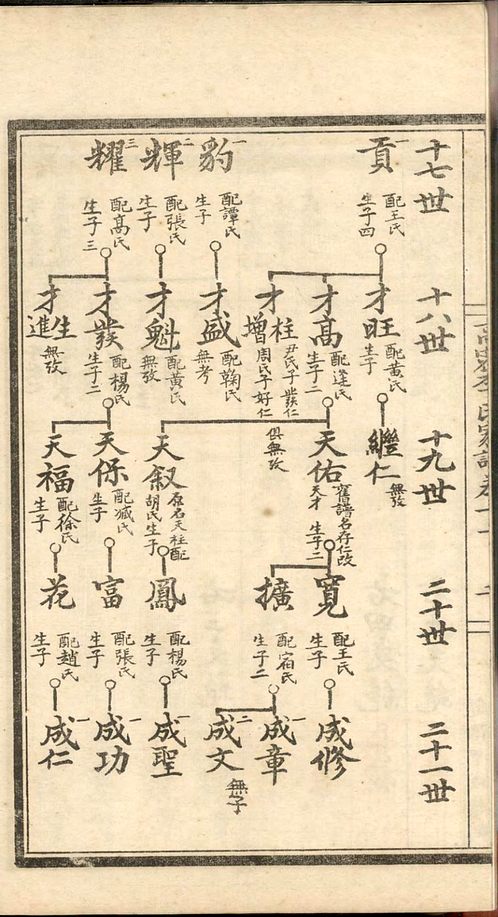 十七世
貢
配王氏
生子四
一
豹
配譚氏
生子
二
輝
配張氏
生子
三
耀
配高氏
生子三
十八世
才旺
配黃氏
生子
才高
配逄氏
生子二
才柱
增
尹氏子發仁
周氏子好仁
俱無攷
才盛
配鞠氏
無考
才魁
配黃氏
無攷
才發
配楊氏
生子二
才生
進
無攷
十九世
繼仁
無攷
天佑
舊譜名存仁改
天才 生子二
天叙
原名天柱配
胡氏生子
天保
配臧氏
生子
天福
配徐氏
生子
二十世
寬
配王氏
生子
擴
配宿氏
生子二
鳳
配楊氏
生子
富
配張氏
生子
花
配趙氏
生子
二十一世
成修
一
成章
二
成文
無子
一
成聖
一
成功
一
成仁